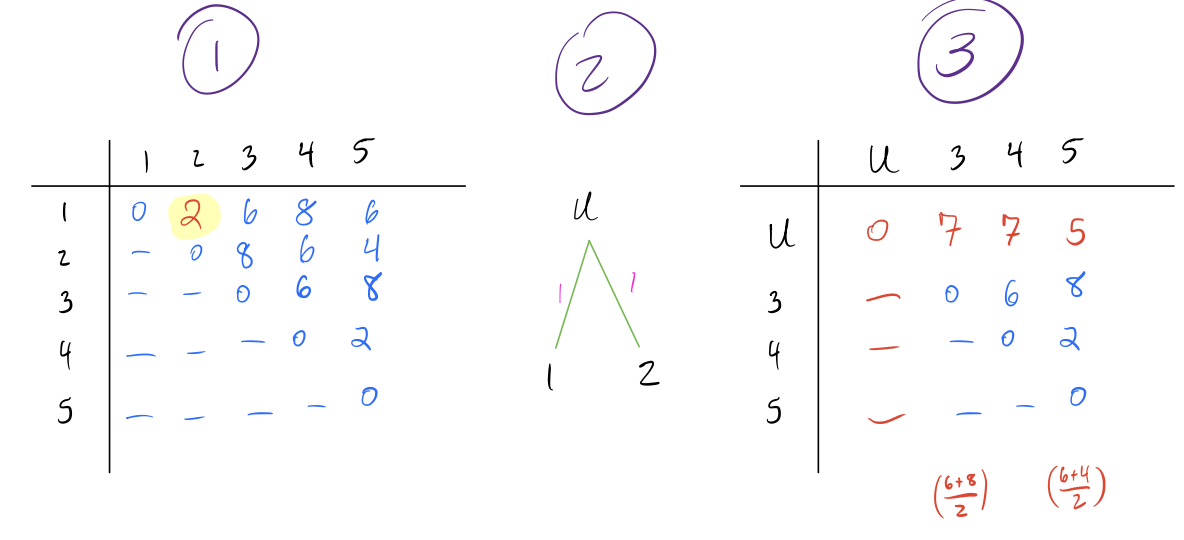 1 2 3
1 2 3 4 5
1 0 2 6 8 6
2 – 0 8 6 4
3 – – 0 6 8
4 – – – 0 2
5 – – – – 0
U
1 1
1 2
U 3 4 5
U 0 7 7 5
3 – 0 6 8
4 – – 0 2
5 – – – 0
(6+8/2) (6+4/2)